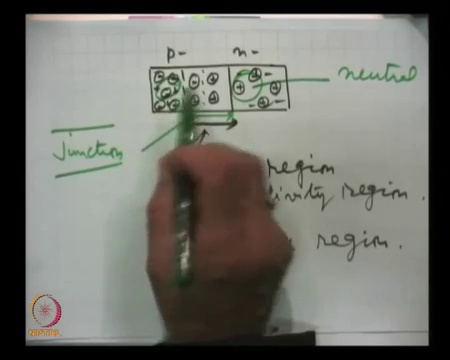 p- n-
neutral
Junction
region
region.
region.
NPTEL